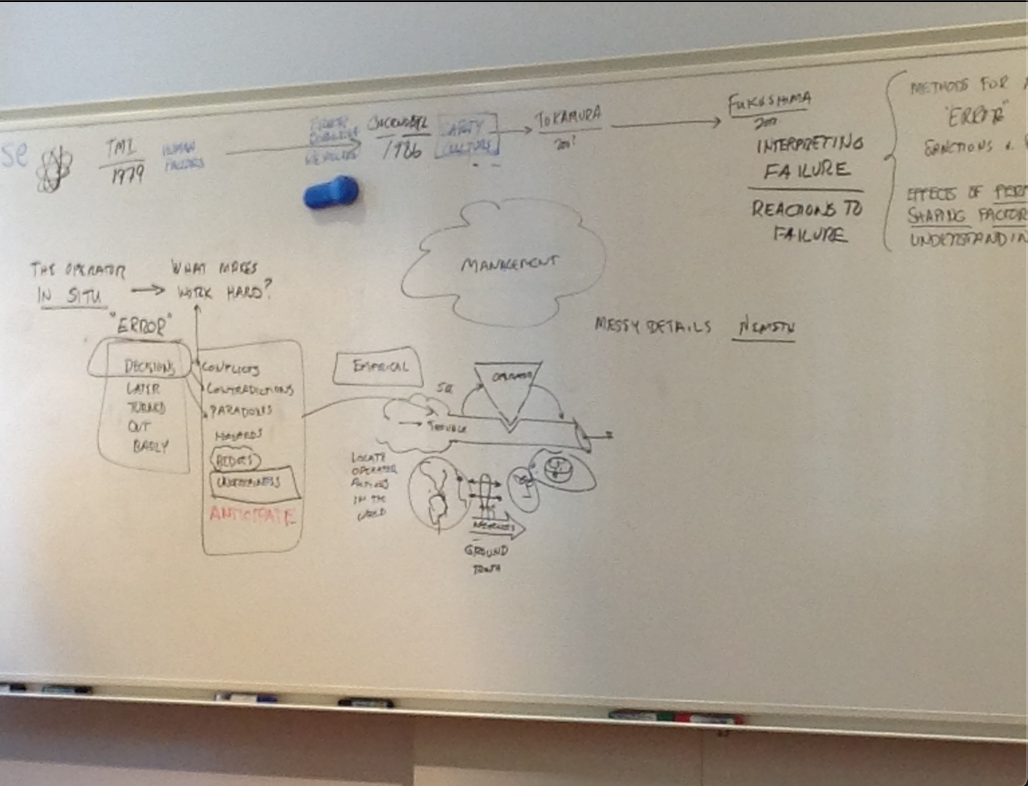 se
TMI
1979
HUMAN
FACTORS
1986
SAFETY
CULTURE
TOKAMURA
FUKUSHIMA
INTERPRETING
FAILURE
REACTIONS TO
FAILURE
METHODS FOR
"ERROR"
SANCTIONS &
EFFECTS OF PERF
SHAPING FACTOR
UNDERSTANDIN
MANAGEMENT
THE OPERATOR
IN SITU
WHAT MAKES
WORK HARD?
"ERROR"
DECISIONS
LATER
TURNED
OUT
BADLY
CONFLICTS
CONTRADICTIONS
PARADOXES
HAZARDS
UNCERTAINESS
ANTICIPATE
EMPIRICAL
OPERATOR
TROUBLE
MESSY DETAILS
LOCATE
OPERATOR
IN THE
WORLD
GROUND
TRUTH